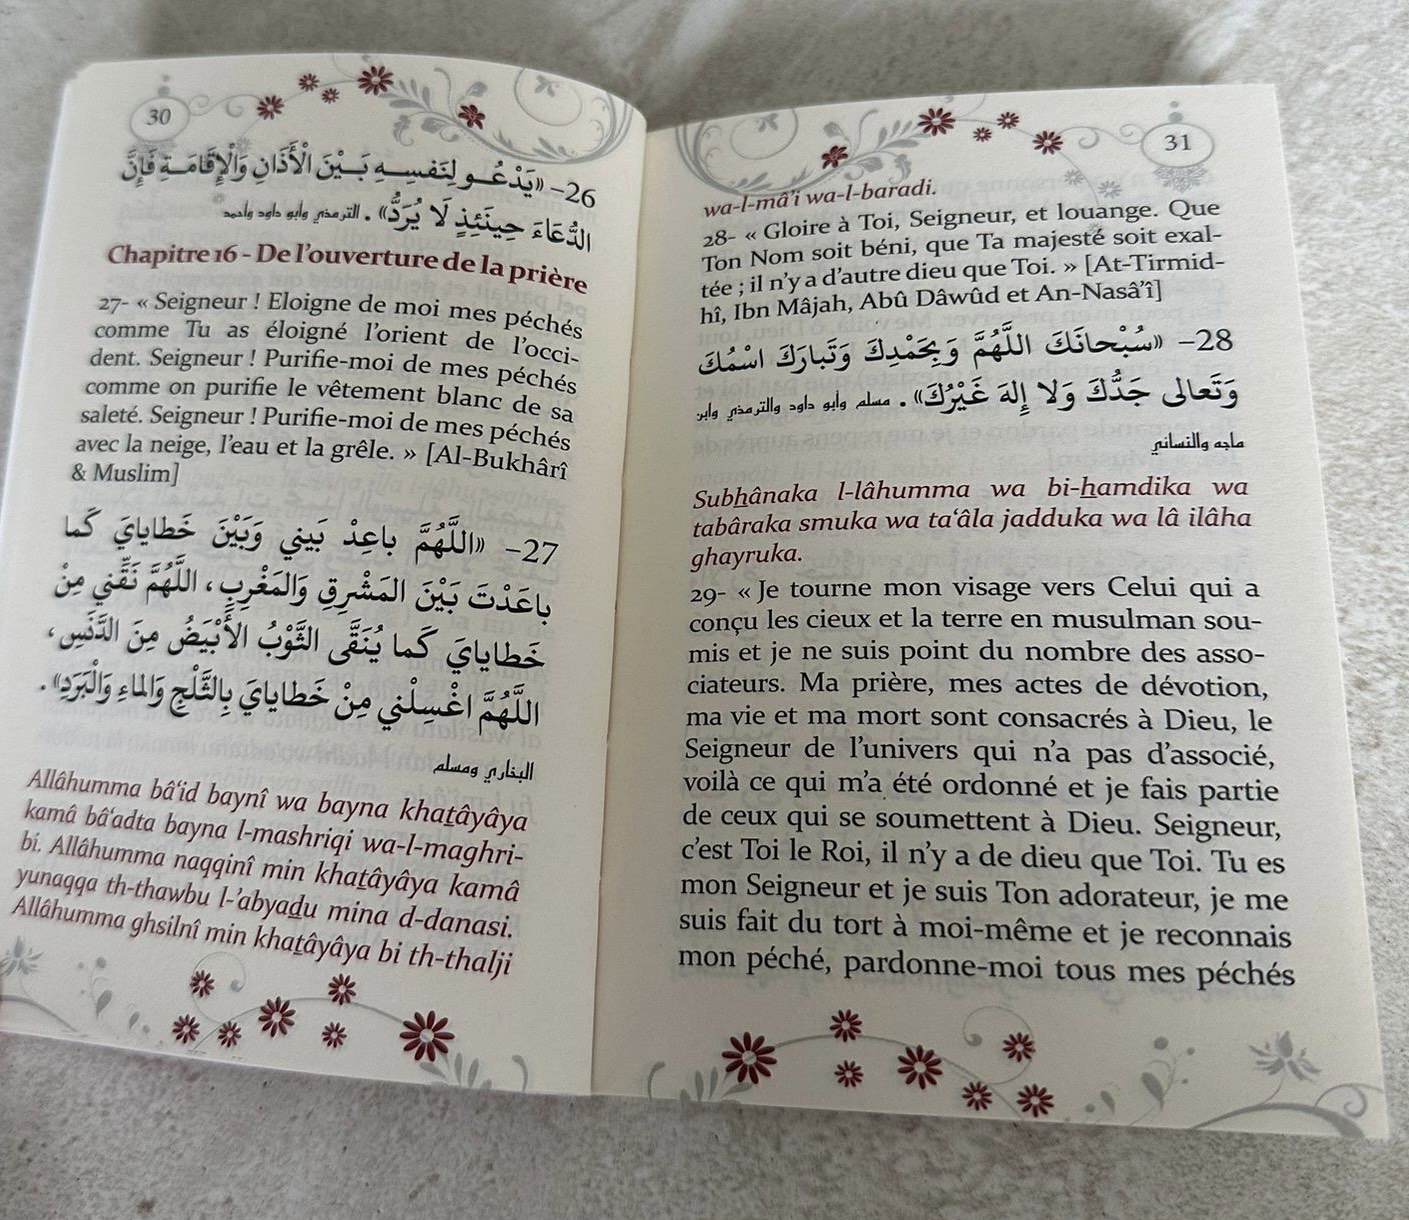 30
26– «يَدْعُـو لِنَفسِـهِ بَـيْنَ الْأَذَانِ وَالْإِقَامَـةِ فَإِنَّ
الدُّعَاءَ حِينَئِذٍ لَا يُرَدُّ». الترمذي وأبو داود وأحمد
Chapitre 16 - De l’ouverture de la prière
27- « Seigneur ! Eloigne de moi mes péchés
comme Tu as éloigné l’orient de l’occi-
dent. Seigneur ! Purifie-moi de mes péchés
comme on purifie le vêtement blanc de sa
saleté. Seigneur ! Purifie-moi de mes péchés
avec la neige, l’eau et la grêle. » [Al-Bukhârî
& Muslim]
27– «اللَّهُمَّ باعِدْ بَيني وَبَيْنَ خَطايايَ كَما
باعَدْتَ بَيْنَ المَشْرِقِ وَالمَغْرِبِ، اللَّهُمَّ نَقِّني مِنْ
خَطايايَ كَما يُنَقَّى الثَّوْبُ الأَبْيَضُ مِنَ الدَّنَسِ،
اللَّهُمَّ اغْسِلْني مِنْ خَطايايَ بِالثَّلْجِ وَالماءِ وَالْبَرَدِ».
البخاري ومسلم
Allâhumma bâ‘id baynî wa bayna khaṯâyâya
kamâ bâ‘adta bayna l-mashriqi wa-l-maghri-
bi. Allâhumma naqqinî min khaṯâyâya kamâ
yunaqqa th-thawbu l-’abyaḏu mina d-danasi.
Allâhumma ghsilnî min khaṯâyâya bi th-thalji
31
wa-l-mâ’i wa-l-baradi.
28- « Gloire à Toi, Seigneur, et louange. Que
Ton Nom soit béni, que Ta majesté soit exal-
tée ; il n’y a d’autre dieu que Toi. » [At-Tirmid-
hî, Ibn Mâjah, Abû Dâwûd et An-Nasâ’î]
28– «سُبْحانَكَ اللَّهُمَّ وَبِحَمْدِكَ وَتَبارَكَ اسْمُكَ
وَتَعالى جَدُّكَ وَلا إِلهَ غَيْرُكَ». مسلم وأبو داود والترمذي وابن
ماجه والنسائي
Subẖânaka l-lâhumma wa bi-ẖamdika wa
tabâraka smuka wa ta‘âla jadduka wa lâ ilâha
ghayruka.
29- « Je tourne mon visage vers Celui qui a
conçu les cieux et la terre en musulman sou-
mis et je ne suis point du nombre des asso-
ciateurs. Ma prière, mes actes de dévotion,
ma vie et ma mort sont consacrés à Dieu, le
Seigneur de l’univers qui n’a pas d’associé,
voilà ce qui m’a été ordonné et je fais partie
de ceux qui se soumettent à Dieu. Seigneur,
c’est Toi le Roi, il n’y a de dieu que Toi. Tu es
mon Seigneur et je suis Ton adorateur, je me
suis fait du tort à moi-même et je reconnais
mon péché, pardonne-moi tous mes péchés